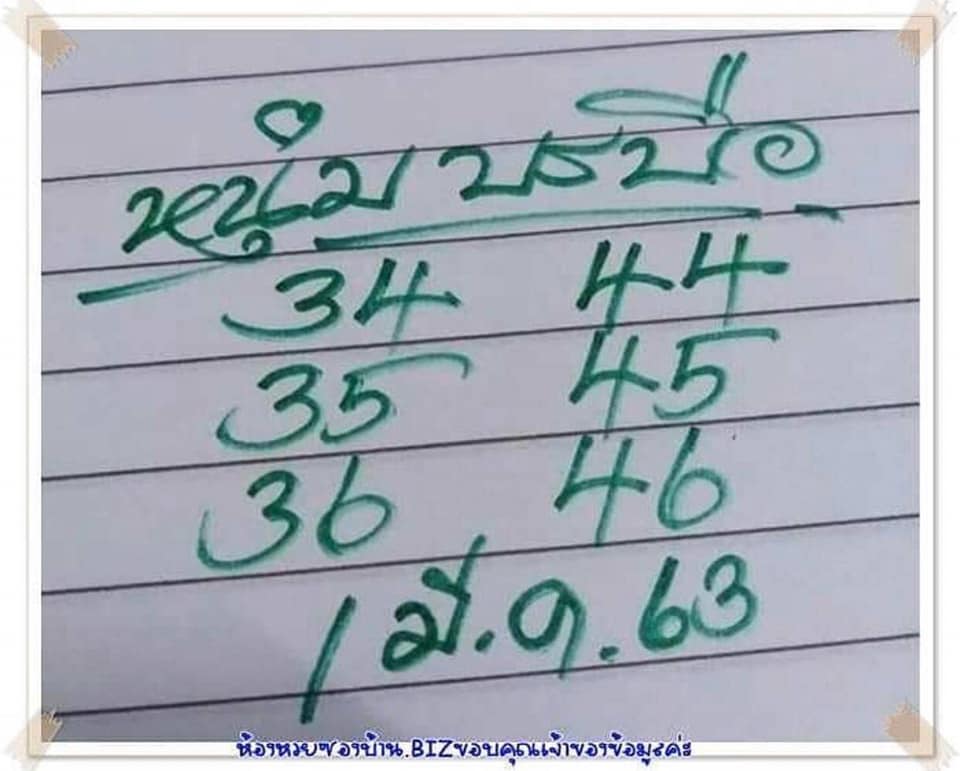 หนุ่ม บรบือ
34 44
35 45
36 46
1 มี.ค.63
ห้องหวยซองบ้าน.BIZขอบคุณเจ้าของข้อมูลค่ะ